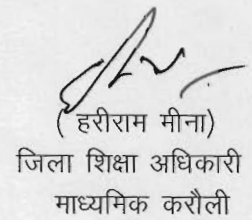 ( हरीराम मीना)
जिला शिक्षा अधिकारी
माध्यमिक करौली